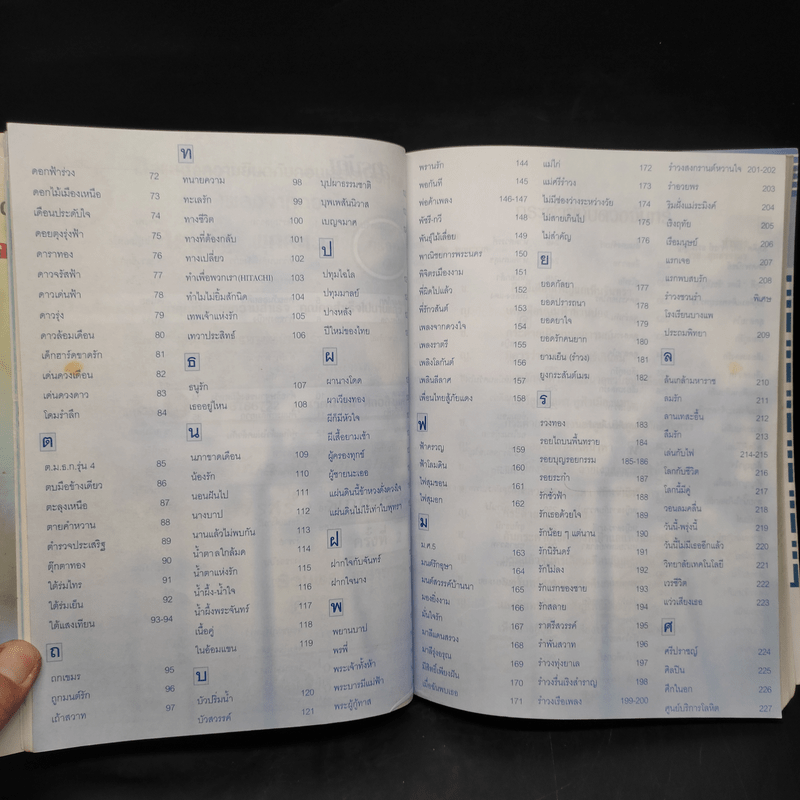 ดอกฟ้าร่วง 72
ดอกไม้เมืองเหนือ 73
เดือนประดับใจ 74
ดอยตุงรุ่งฟ้า 75
ดาราทอง 76
ดาวจรัสฟ้า 77
ดาวเด่นฟ้า 78
ดาวรุ่ง 79
ดาวล้อมเดือน 80
เด็กฮาร์ดขาดรัก 81
เด่นดวงเดือน 82
เด่นดวงดาว 83
โดมรำลึก 84
ต
ต.ม.ธ.ก.รุ่น 4 85
ตบมือข้างเดียว 86
ตะลุงเหนือ 87
ตายคำหวาน 88
ตำรวจประเสริฐ 89
ตุ๊กตาทอง 90
ใต้ร่มไทร 91
ใต้ร่มเย็น 92
ใต้แสงเทียน 93-94
ถ
ถกเขมร 95
ถูกมนต์รัก 96
เถ้าสวาท 97
ท
ทนายความ 98
ทะเลรัก 99
ทางชีวิต 100
ทางที่ต้องกลับ 101
ทางเปลี่ยว 102
ทำเพื่อพวกเรา (HITACHI) 103
ทำไมไม่ยิ้มสักนิด 104
เทพเจ้าแห่งรัก 105
เทวาประสิทธ์ 106
ธ
ธนูรัก 107
เธออยู่ไหน 108
น
นภาขาดเดือน 109
น้องรัก 110
นอนฝันไป 111
นางบาป 112
นานแล้วไม่พบกัน 113
น้ำตาลใกล้มด 114
น้ำตาแห่งรัก 115
น้ำผึ้ง-น้ำใจ 116
น้ำผึ้งพระจันทร์ 117
เนื้อคู่ 118
ในอ้อมแขน 119
บ
บัวปริ่มน้ำ 120
บัวสวรรค์ 121
บุปผาธรรมชาติ
บุพเพสันนิวาส
เบญจมาศ
ป
ปทุมไฉไล
ปทุมมาลย์
ปางหลัง
ปีใหม่ของไทย
ผ
ผานางโดด
ผาเวียงทอง
ผีก็มีหัวใจ
ผีเสื้อยามเช้า
ผู้ครองทุกข์
ผู้ชายนะเธอ
แผ่นดินนี้ข้าหวงดั่งดวงใจ
แผ่นดินไม่ไร้เท่าใบพุทรา
ฝ
ฝากใจกับจันทร์
ฝากใจนาง
พ
พยานบาป
พรพี่
พระเจ้าทั้งห้า
พระบารมีแม่ฟ้า
พระผู้กู้ทาส
พรานรัก 144
พอกันที 145
พ่อค้าเพลง 146-147
พัชรี-กวี 148
พันธุ์ไม้เลื้อย 149
พาณิชยการพระนคร 150
พิจิตรเมืองงาม 151
พี่ผิดไปแล้ว 152
พี่รักวสันต์ 153
เพลงจากดวงใจ 154
เพลงราตรี 155
เพลิงโลกันต์ 156
เพลินลีลาศ 157
เพื่อนไทยสู้ภัยแดง 158
ฟ
ฟ้าครวญ 159
ฟ้าโลมดิน 160
ไฟสุมขอน 161
ไฟสุมอก 162
ม
ม.ศ.5 163
มนต์รักอุษา 164
มนต์สวรรค์บ้านนา 165
มองยิ่งงาม 166
มั่นใจรัก 167
มาลีแดนสรวง 168
มาลีรุ่งอรุณ 169
มีสิทธิ์เพียงฝัน 170
เมื่อฉันพบเธอ 171
แม่ไก่ 172
แม่ศรีรำวง 173
ไม่มีช่องว่างระหว่างวัย 174
ไม่สายเกินไป 175
ไม่สำคัญ 176
ย
ยอดกัลยา 177
ยอดปรารถนา 178
ยอดยาใจ 179
ยอดรักคนยาก 180
ยามเย็น (รำวง) 181
ยูงกระสันต์เมฆ 182
ร
รวงทอง 183
รอยไถบนพื้นทราย 184
รอยบุญรอยกรรม 185-186
รอยระกำ 187
รักชั่วฟ้า 188
รักเธอด้วยใจ 189
รักน้อย ๆ แต่นาน 190
รักนิรันดร์ 191
รักไม่ลง 192
รักแรกของชาย 193
รักสลาย 194
ราตรีสวรรค์ 195
รำพันสวาท 196
รำวงทุ่งยาเล 197
รำวงรื่นเริงสำราญ 198
รำวงเรือเพลง 199-200
รำวงสงกรานต์หวานใจ 201-202
รำอวยพร 203
ริมฝั่งแม่ระมิงค์ 204
เริงฤทัย 205
เรือมนุษย์ 206
แรกเจอ 207
แรกพบสบรัก 208
รำวงชวนรำ พิเศษ
โรงเรียนบางแพ
ปฐมพิทยา 209
ล
ล้นเกล้ามหาราช 210
ลมรัก 211
ลานเทสะอื้น 212
ลืมรัก 213
เล่นกับไฟ 214-215
โลกกับชีวิต 216
โลกนี้มีคู่ 217
วอนลมคลื่น 218
วันนี้-พรุ่งนี้ 219
วันนี้ไม่มีเธออีกแล้ว 220
วิทยาลัยเทคโนโลยี 221
เวรชีวิต 222
แว่วเสียงเธอ 223
ศ
ศรีปราชญ์ 224
ศิลปิน 225
ศึกในอก 226
ศูนย์บริการโลหิต 227